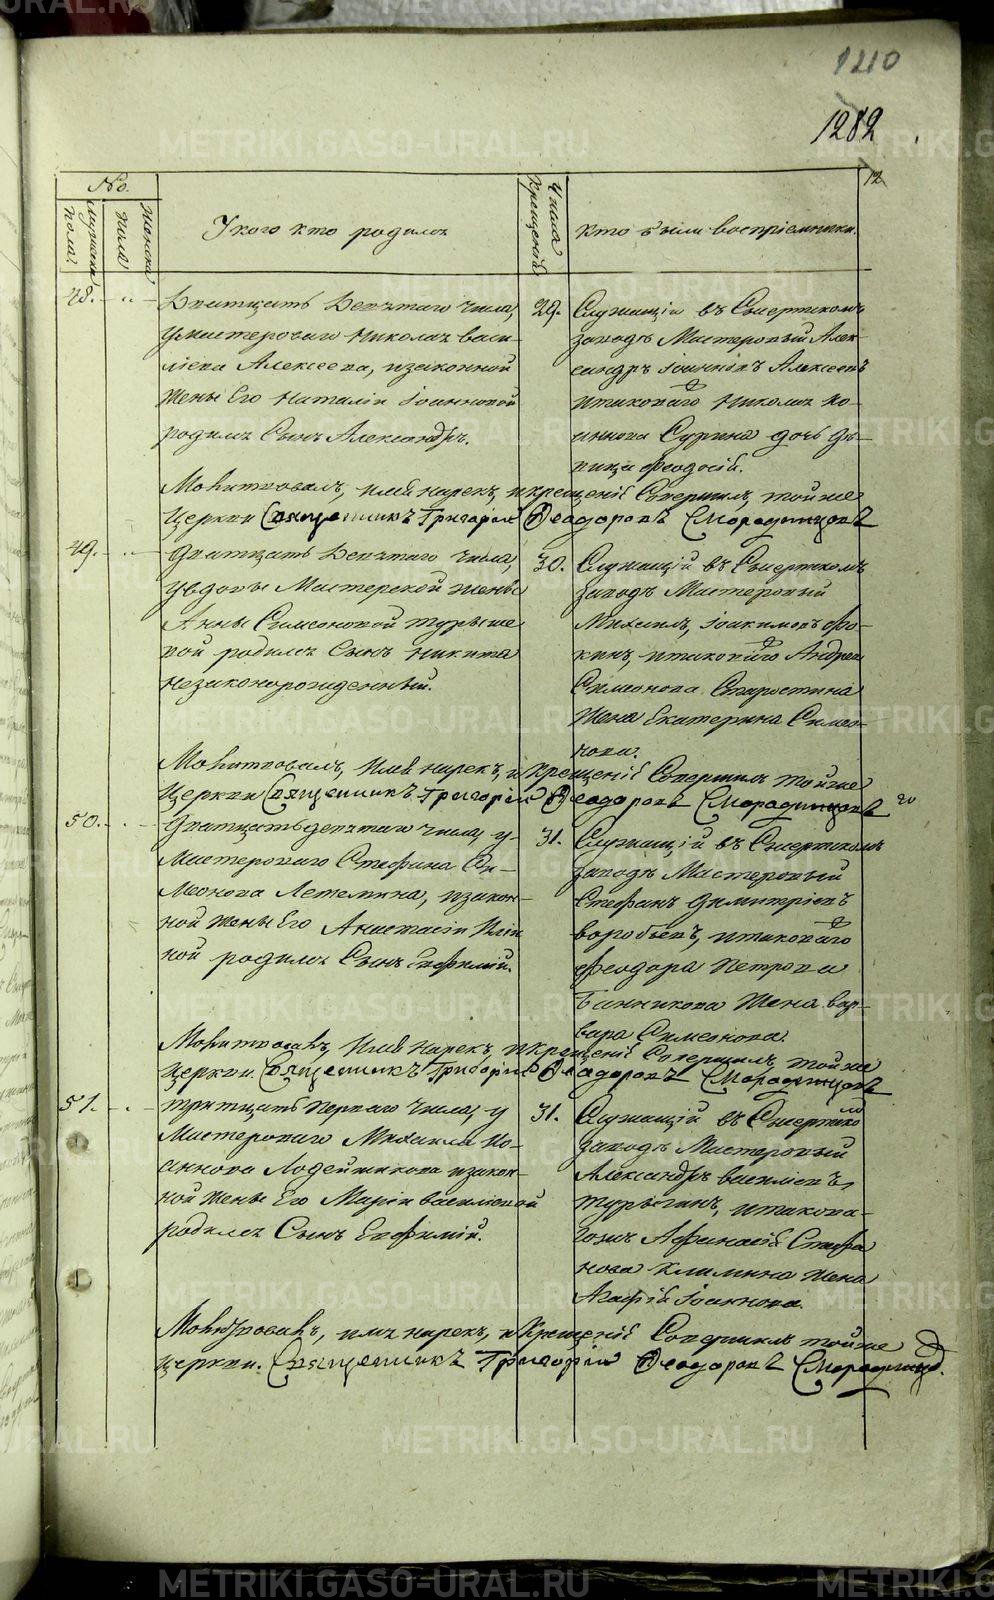 1210
1282
12
№.
мужеска пола.
Женска пола
У кого кто родился
Числа Крещенія
кто были воспріемники.
48.
Двадцать девятаго числа,
у мастероваго Николая Васи-
ліева Алексеева, и законной
жены Его Наталіи Іоанновой
родился Сынъ Александръ.
29.
Служащій въ Сысертскомъ
заводѣ Мастеровый Алек-
сандръ Іоанновъ Алексеевъ
и таковаго Николая Ио-
аннова Сурина дочь дѣ-
вица Феодосія.
Молитвовалъ, имя нарекъ, и крещеніе Совершилъ, той же
Церкви Священникъ Григорій Феодоровъ Смородинцовъ
49.
Двадцать девятаго числа,
у вдовы Мастерской жены
Анны Симеоновой Турыше-
вой родился Сынъ Никита
незаконорожденный.
30.
Служащій въ Сысертскомъ
заводѣ Мастеровый
Михаилъ Іоакимовъ Фо-
кинъ, и таковаго Андрея
Симеонова Старостина
жена Екатерина Симео-
нова.
Молитвовалъ, имя нарекъ, и крещеніе Совершилъ той же
Церкви Священникъ Григорій Феодоровъ Смородинцовъ
50.
Двадцать девятаго числа, у
Мастероваго Стефана Си-
меонова Летемина, и закон-
ной жены Его Анастасіи Иліи-
ной родился Сынъ Евфимій.
31.
Служащій въ Сысертскомъ
заводѣ Мастеровый
Стефанъ Димитріевъ
Воробьевъ, и таковаго
Феодора Петрова
Банникова жена Вар-
вара Симеонова.
Молитвовалъ, имя нарекъ, и крещеніе Совершилъ, той же
Церкви. Священникъ Григорій Феодоровъ Смородинцовъ
51.
тритцать перваго числа, у
Мастероваго Михаила Ио-
аннова Лодейщикова и закон-
ной жены Его Маріи Василіевой
родился Сынъ Евфимій.
31.
Служащій въ Сысертско
заводѣ Мастеровый
Александръ Василіевъ
Турыгинъ, и такова-
гожъ Афанасія Стефа
нова Климина жена
Агафія Іоаннова.
Молитвовалъ, имя нарекъ, и Крещеніе Совершилъ той же
Церкви. Священникъ Григорій Феодоровъ Смородинцо.
METRIKI.GASO-URAL.RU